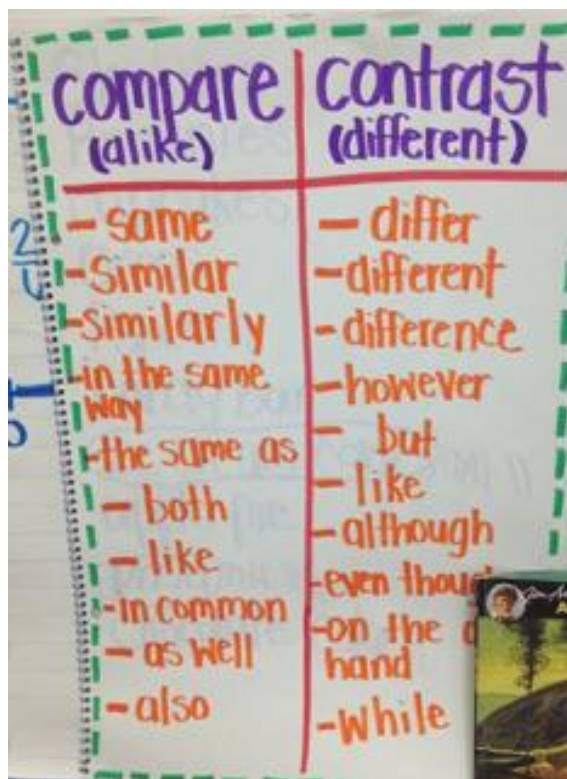 compare
(alike)
- same
- Similar
- Similarly
- in the same
way
- the same as
- both
- like
- in common
- as well
- also
contrast
(different)
- differ
- different
- difference
- however
- but
- like
- although
- even
- on the
hand
- While